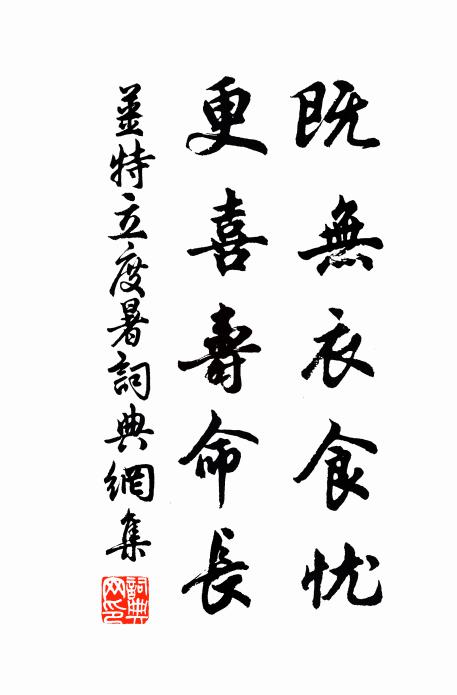 既無衣食忧
更喜壽命長
姜特立度暑詞典網集
詞典
网印